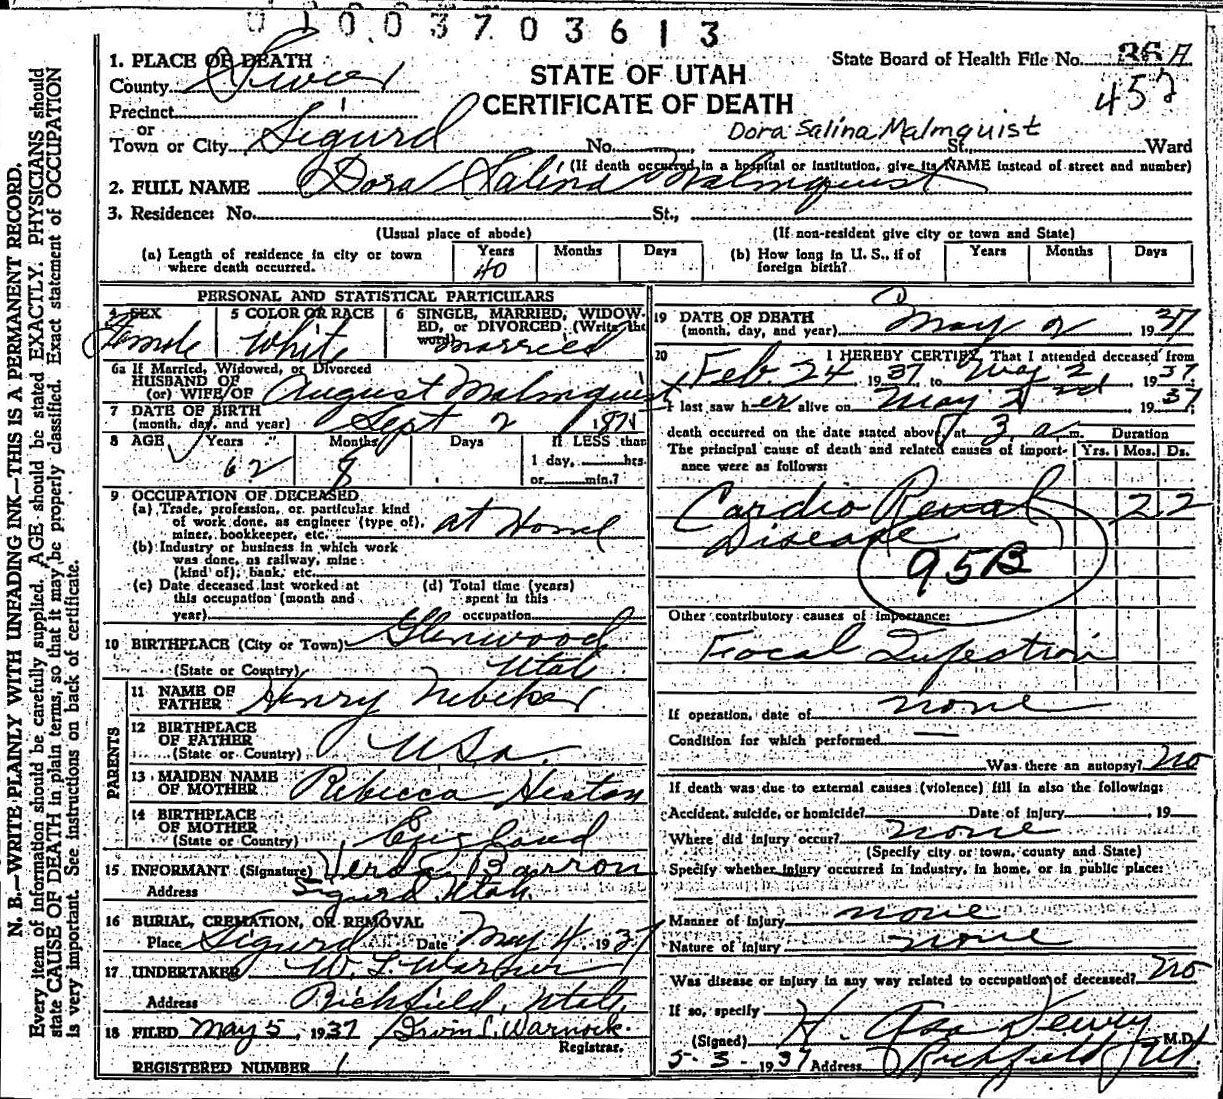 01003703613
1. PLACE OF DEATH
State Board of Health File No. 36 A
County Sevier
STATE OF UTAH
CERTIFICATE OF DEATH
452
Precinct
or
Town or City Sigurd No. , Dora Salina Malmquist St., Ward
(If death occurred in a hospital or institution, give its NAME instead of street and number)
2. FULL NAME Dora Salina Malmquist
3. Residence: No. St.,
(Usual place of abode) (If non-resident give city or town and State)
(a) Length of residence in city or town where death occurred. Years 40 Months Days
(b) How long in U. S., if of foreign birth? Years Months Days
PERSONAL AND STATISTICAL PARTICULARS
4 SEX Female
5 COLOR OR RACE White
6 SINGLE, MARRIED, WIDOWED, or DIVORCED (Write the word) married
6a If Married, Widowed, or Divorced
HUSBAND OF
(or) WIFE OF August Malmquist
7 DATE OF BIRTH
(month, day, and year) Sept 2 1875
8 AGE Years 62 Months 8 Days If LESS than
1 day, hrs.
or min.?
9 OCCUPATION OF DECEASED
(a) Trade, profession, or particular kind
of work done, as engineer (type of),
miner, bookkeeper, etc. at Home
(b) Industry or business in which work
was done, as railway, mine
(kind of), bank, etc.
(c) Date deceased last worked at
this occupation (month and
year)
(d) Total time (years)
spent in this
occupation
10 BIRTHPLACE (City or Town) Glenwood
(State or Country) Utah
PARENTS
11 NAME OF
FATHER Henry Nebeker
12 BIRTHPLACE
OF FATHER
(State or Country) USA.
13 MAIDEN NAME
OF MOTHER Rebecca Heaton
14 BIRTHPLACE
OF MOTHER
(State or Country) England
15 INFORMANT (Signature) Verda Barron
Address Sigurd Utah.
16 BURIAL, CREMATION, OR REMOVAL
Place Sigurd Date May 4, 1937
17 UNDERTAKER W. L. Warner
Address Richfield, Utah.
18 FILED May 5, 1937 Warnock
Registrar.
REGISTERED NUMBER 1
19 DATE OF DEATH
(month, day, and year) May 2 1937
20 I HEREBY CERTIFY, That I attended deceased from
Feb. 24 1937 to May 2 1937
I last saw her alive on May 2nd 1937
death occurred on the date stated above, at 3 a m. Duration
The principal cause of death and related causes of importance were as follows: Yrs. Mos. Ds.
Cardio Renal 2 2
Disease
95B
Other contributory causes of importance:
Focal Infection
If operation, date of none
Condition for which performed —
Was there an autopsy? no
If death was due to external causes (violence) fill in also the following:
Accident, suicide, or homicide? Date of injury , 19
Where did injury occur? none
(Specify city or town, county and State)
Specify whether injury occurred in industry, in home, or in public place:
Manner of injury none
Nature of injury none
Was disease or injury in any way related to occupation of deceased? no
If so, specify
(Signed) H. Asa Dewey M.D.
5-3- 1937 Address Richfield, Ut
N. B.—WRITE PLAINLY WITH UNFADING INK—THIS IS A PERMANENT RECORD.
Every item of information should be carefully supplied. AGE should be stated EXACTLY. PHYSICIANS should
state CAUSE OF DEATH in plain terms, so that it may be properly classified. Exact statement of OCCUPATION
is very important. See instructions on back of certificate.